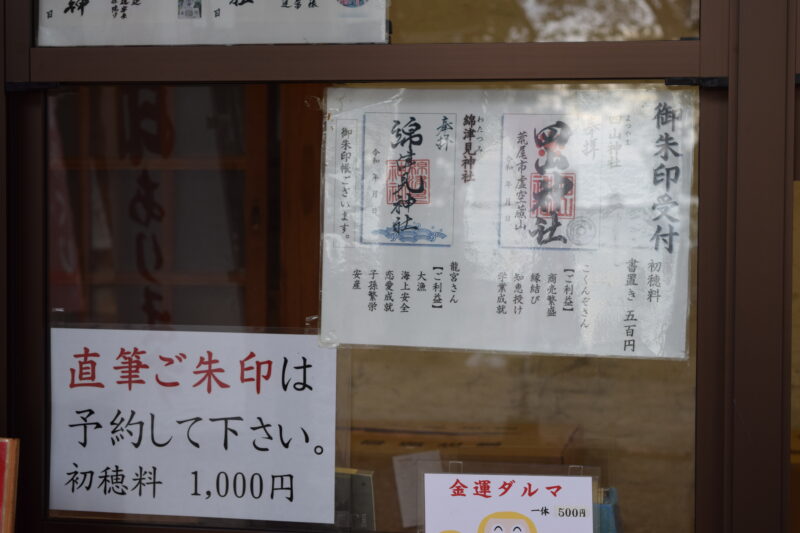 御朱印受付
初穂料
書置き 五百円
四山神社
よつやま
奉拝
四山神社
荒尾市虚空蔵山
令和 年 月 日
こくんぞさん
【ご利益】
商売繁盛
縁結び
知恵授け
学業成就
わたつみ
綿津見神社
奉拝
綿津見神社
令和 年 月 日
御朱印帳ございます。
龍宮さん
【ご利益】
大漁
海上安全
恋愛成就
子孫繁栄
安産
直筆ご朱印は
予約して下さい。
初穂料 1,000円
金運ダルマ
一休 500円